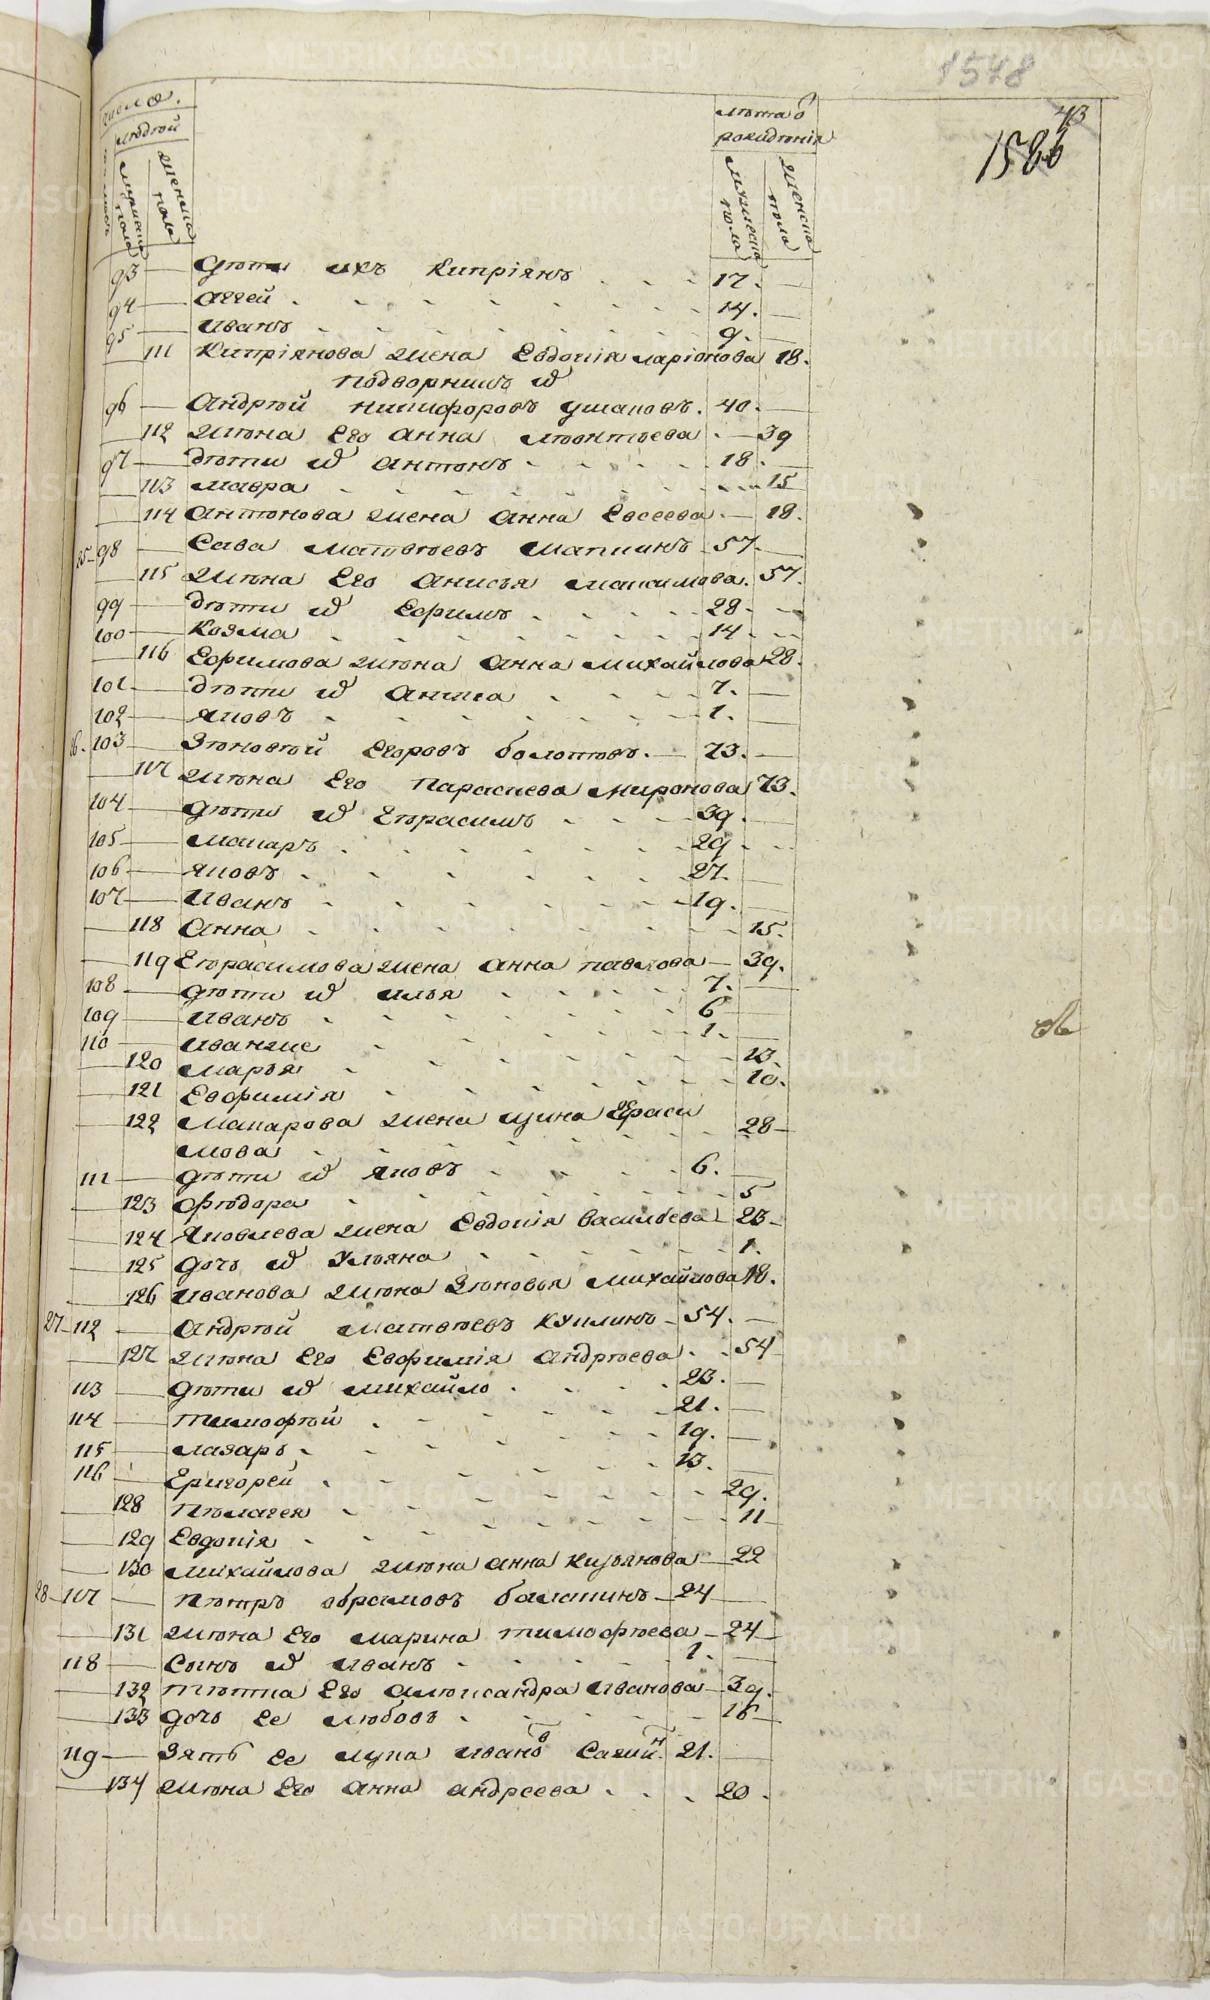 1548
43
1586
число
людѣй
мужеска пола
женска пола
лѣта ѿ рождѣнія
мужеска пола
женска пола
93 — дѣти ихъ Кипріянъ 17. —
94 — Аггей 14. —
95 — Иванъ 9. —
— 111 Кипріянова жена Евдокія Ларіонова 18.
подворникъ ихъ
96 — Андрѣй Никифоровъ Ушаковъ. 40. —
— 112 жѣна Его Анна Лѣонтьева — 39
97 — дѣти ихъ Антонъ 18. —
— 113 Мавра 15
— 114 Антонова жена Анна Евсеева — 18.
25 98 — Сава Матвѣевъ Мапкинъ 57. —
— 115 жѣна Его Анисья Максимова. 57.
99 — дѣти ихъ Ефимъ 28. —
100 — Козма 14.
— 116 Ефимова жѣна Анна Михайлова 28.
101 — дѣти ихъ Аника 7. —
102 — Яковъ 1. —
26. 103 — Зѣновѣй Егоровъ Болотовъ. — 73. —
— 117 жѣна Его Параскева Миронова 73.
104 — дѣти ихъ Герасимъ 39. —
105 — Макаръ 29
106 — Яковъ 27. —
107 — Иванъ 19. —
— 118 Анна 15.
— 119 Герасимова жена Анна Павлова — 39.
108 — дѣти ихъ Илья 7. —
109 — Иванъ 6 —
110 — Иванже 1. —
— 120 Марья 13.
— 121 Евфимія 10.
— 122 Макарова жена Ирина Гераси 28
мова
111 — дѣти ихъ Яковъ 6. —
— 123 Фѣдора 5
— 124 Яковлева жена Евдокія Васильева 23
— 125 дочь ихъ Ульяна 1.
— 126 Иванова жѣна Зѣновья Михайлова 18.
27 112 — Андрѣй Матвѣевъ Куклинъ 54. —
— 127 жѣна Его Евфимія Андрѣева 54
113 — дѣти ихъ Михайло 23. —
114 — Тимофѣй 21. —
115 — Лазарь 19. —
116 — Григорей 13. —
— 128 Пѣлагея 29.
— 129 Евдокія 11
— 130 Михайлова жѣна Анна Кузьянова — 22
28 117 — Пѣтръ Абрамовъ Балакинъ 24 —
— 131 жѣна Его Марина Тимофѣева 24
118 — Сынъ ихъ Иванъ 1. —
— 132 тѣтка Его Алѣксандра Иванова 39.
— 133 дочь Ее Любовь 16
119 — Зять Ее Лупа Иванов Сажин. 21. —
— 134 жѣна Его Анна Андреева 20.
METRIKI.GASO-URAL.RU